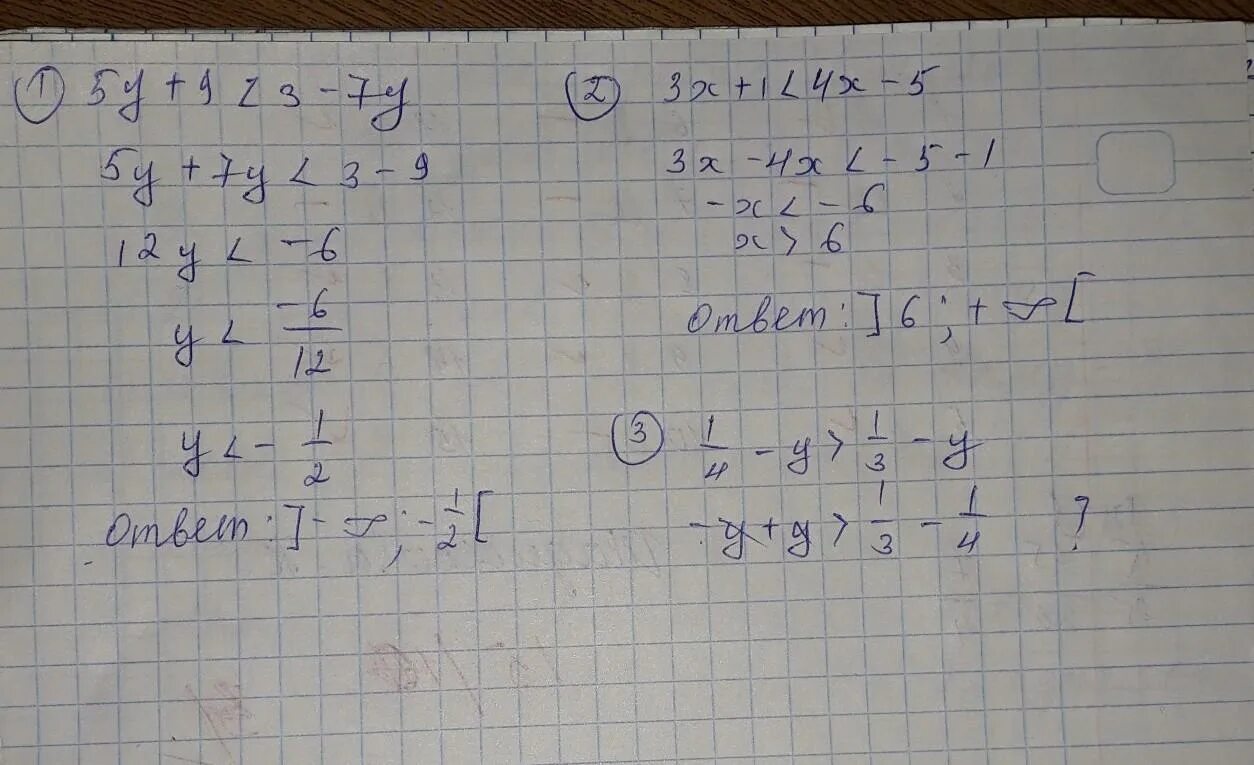 ① 5y + 9 < 3 - 7y
5y + 7y < 3 - 9
12y < -6
y < -6/12
y < - 1/2
ответ: ]-∞; -1/2[
② 3x + 1 < 4x - 5
3x - 4x < -5 - 1
-x < -6
x > 6
ответ: ]6; +∞[
③ 1/4 - y > 1/3 - y
-y + y > 1/3 - 1/4 ?